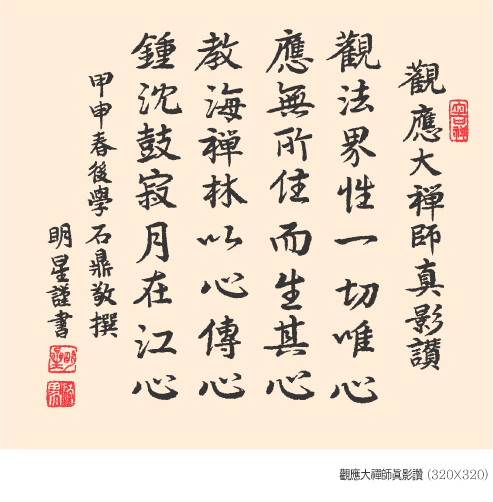 觀應大禪師真影讃
觀法界性一切唯心
應無所住而生其心
教海禪林以心傳心
鍾沈鼓寂月在江心
甲申春後學石鼎敬撰
明星謹書
觀應大禪師眞影讚 (320X320)